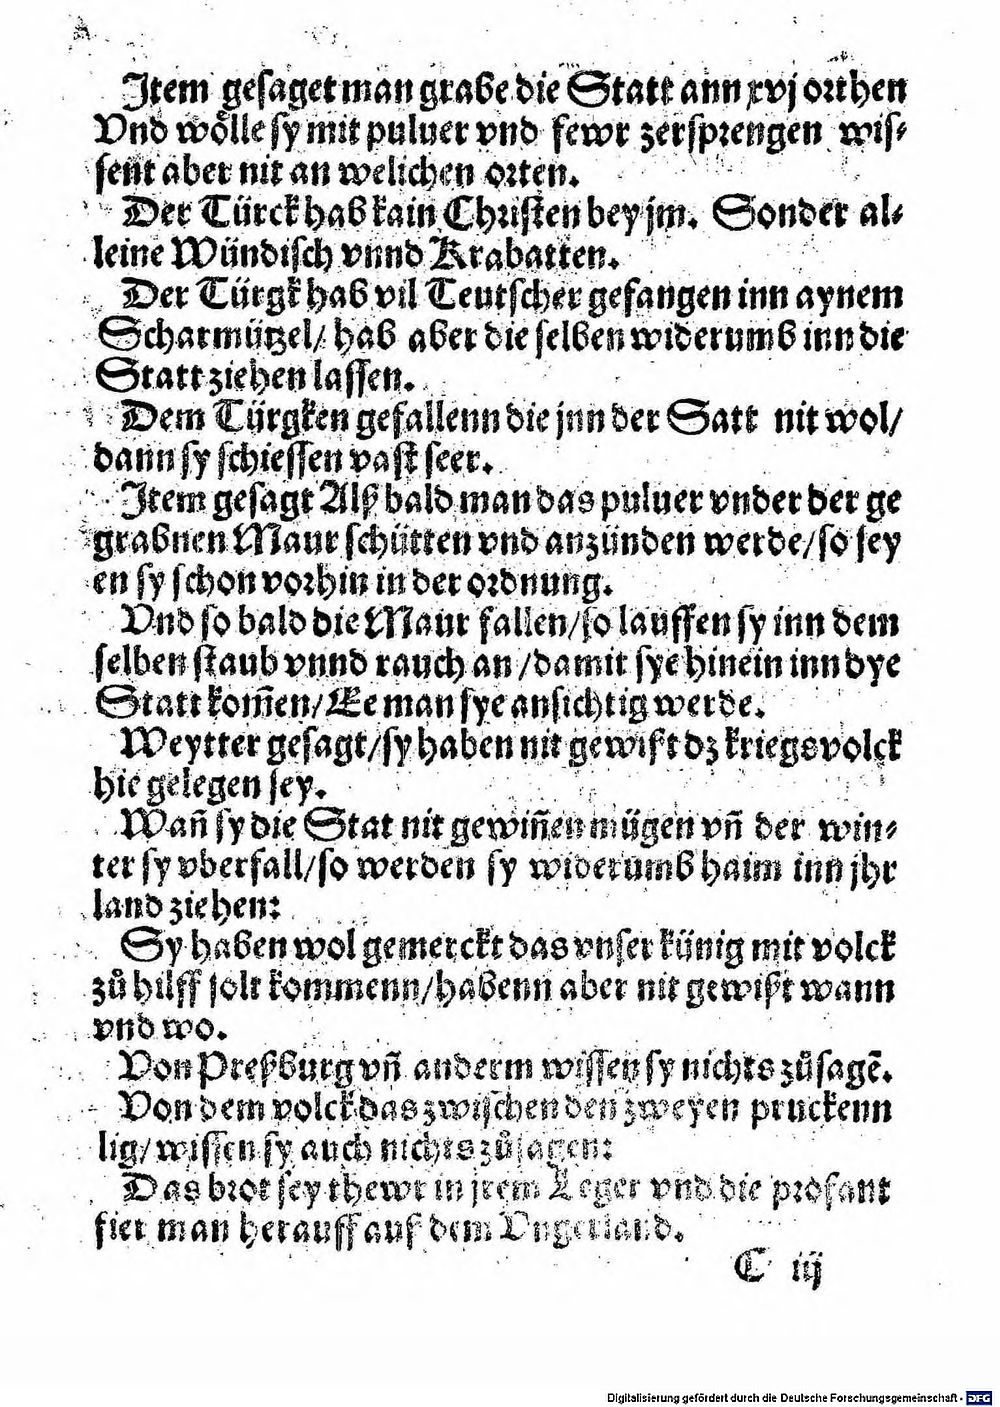 Jtem gesaget man grabe die Statt ann xvj orthen
Vnd woͤlle sy mit puluer vnd fewr zersprengen wis⸗
sent aber nit an welichen orten.
Der Türck hab kain Christen bey jm. Sonder al⸗
leine Wündisch vnnd Krabatten.
Der Türgk hab vil Teutscher gefangen inn aynem
Scharmützel/ hab aber die selben widerumb inn die
Statt ziehen lassen.
Dem Türgken gefallenn die jnn der Satt nit wol/
dann sy schiessen vast seer.
Jtem gesagt Alß bald man das puluer vnder der ge
grabnen Maur schütten vnd anzünden werde/so sey
en sy schon vorhin in der ordnung.
Vnd so bald die Maur fallen/so lauffen sy inn dem
selben staub vnnd rauch an /damit sye hinein inn dye
Statt kom̃en/Ee man sye ansichtig werde.
Weytter gesagt/sy haben nit gewist dz kriegsvolck
hie gelegen sey.
Wañ sy die Stat nit gewiñen mügen vñ der win⸗
ter sy vberfall/so werden sy widerumb haim inn jhr
land ziehen:
Sy haben wol gemerckt das vnser künig mit volck
zů hilff solt kommenn/habenn aber nit gewißt wann
vnd wo.
Von Preßburg vñ anderm wissen sy nichts zůsagẽ.
Von dem volck das zwischen den zweyen pruckenn
lig/wissen sy auch nichts zůsagen:
Das brot sey thewr in jrem Leger vnd die profant
fier man herauff auß dem Vngerland.
C iij
Digitalisierung gefördert durch die Deutsche Forschungsgemeinschaft - DFG